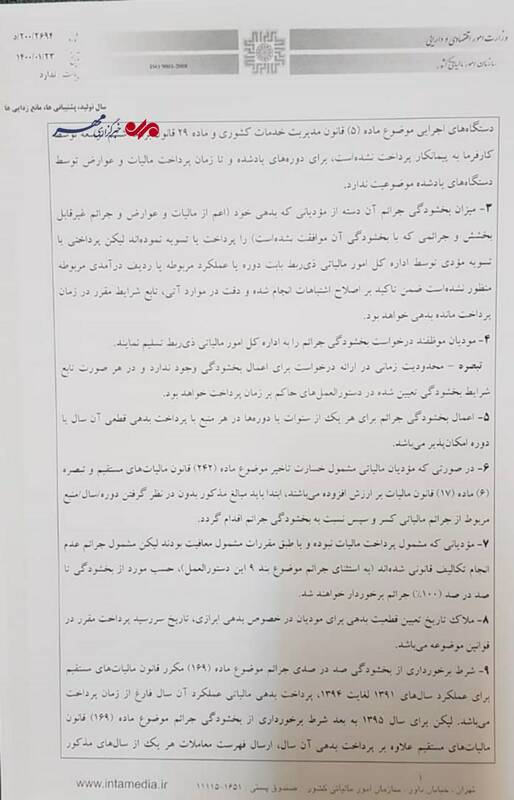 وزارت امور اقتصادی و دارایی
سازمان امور مالیاتی کشور
ISO 9001-2008
۲۰۰/۲۶۹۴/د
۱۴۰۰/۰۱/۲۳
ندارد
سال تولید، پشتیبانی ها، مانع زدایی ها
خبرگزاری مهر
دستگاه‌های اجرایی موضوع ماده (۵) قانون مدیریت خدمات کشوری و ماده ۲۹ قانون توسعه توسط
کارفرما به پیمانکار پرداخت نشده‌است، برای دوره‌های یادشده و تا زمان پرداخت مالیات و عوارض توسط
دستگاه‌های یادشده موضوعیت ندارد.
۳- میزان بخشودگی جرائم آن دسته از مؤدیانی که بدهی خود (اعم از مالیات و عوارض و جرائم غیرقابل
بخشش و جرائمی که با بخشودگی آن موافقت نشده‌است) را پرداخت یا تسویه نموده‌اند لیکن پرداختی یا
تسویه مؤدی توسط اداره کل امور مالیاتی ذی‌ربط بابت دوره یا عملکرد مربوطه یا ردیف درآمدی مربوطه
منظور نشده‌است ضمن تاکید بر اصلاح اشتباهات انجام شده و دقت در موارد آتی، تابع شرایط مقرر در زمان
پرداخت مانده بدهی خواهد بود.
۴- مودیان موظفند درخواست بخشودگی جرائم را به اداره کل امور مالیاتی ذی‌ربط تسلیم نمایند.
تبصره – محدودیت زمانی در ارائه درخواست برای اعمال بخشودگی وجود ندارد و در هر صورت تابع
شرایط بخشودگی تعیین شده در دستورالعمل‌های حاکم بر زمان پرداخت خواهد بود.
۵- اعمال بخشودگی جرائم برای هر یک از سنوات یا دوره‌ها در هر منبع با پرداخت بدهی قطعی آن سال یا
دوره امکان‌پذیر می‌باشد.
۶- در صورتی که مؤدیان مالیاتی مشمول خسارت تاخیر موضوع ماده (۲۴۲) قانون مالیات‌های مستقیم و تبصره
(۶) ماده (۱۷) قانون مالیات بر ارزش افزوده می‌باشند، ابتدا باید مبالغ مذکور بدون در نظر گرفتن دوره/سال/منبع
مربوط از جرائم مالیاتی کسر و سپس نسبت به بخشودگی جرائم اقدام گردد.
۷- مؤدیانی که مشمول پرداخت مالیات نبوده و یا طبق مقررات مشمول معافیت بودند لیکن مشمول جرائم عدم
انجام تکالیف قانونی شده‌اند (به استثنای جرائم موضوع بند ۹ این دستورالعمل)، حسب مورد از بخشودگی تا
صد در صد (۱۰۰٪) جرائم برخوردار خواهند شد.
۸- ملاک تاریخ تعیین قطعیت بدهی برای مودیان در خصوص بدهی ابرازی، تاریخ سررسید پرداخت مقرر در
قوانین موضوعه می‌باشد.
۹- شرط برخورداری از بخشودگی صد در صدی جرائم موضوع ماده (۱۶۹) مکرر قانون مالیات‌های مستقیم
برای عملکرد سال‌های ۱۳۹۱ لغایت ۱۳۹۴، پرداخت بدهی مالیاتی عملکرد آن سال فارغ از زمان پرداخت
می‌باشد. لیکن برای سال ۱۳۹۵ به بعد شرط برخورداری از بخشودگی جرائم موضوع ماده (۱۶۹) قانون
مالیات‌های مستقیم علاوه بر پرداخت بدهی آن سال، ارسال فهرست معاملات هر یک از سال‌های مذکور
تهران، خیابان داور، سازمان امور مالیاتی کشور صندوق پستی : ۱۶۵۱-۱۱۱۱۵
www.intamedia.ir